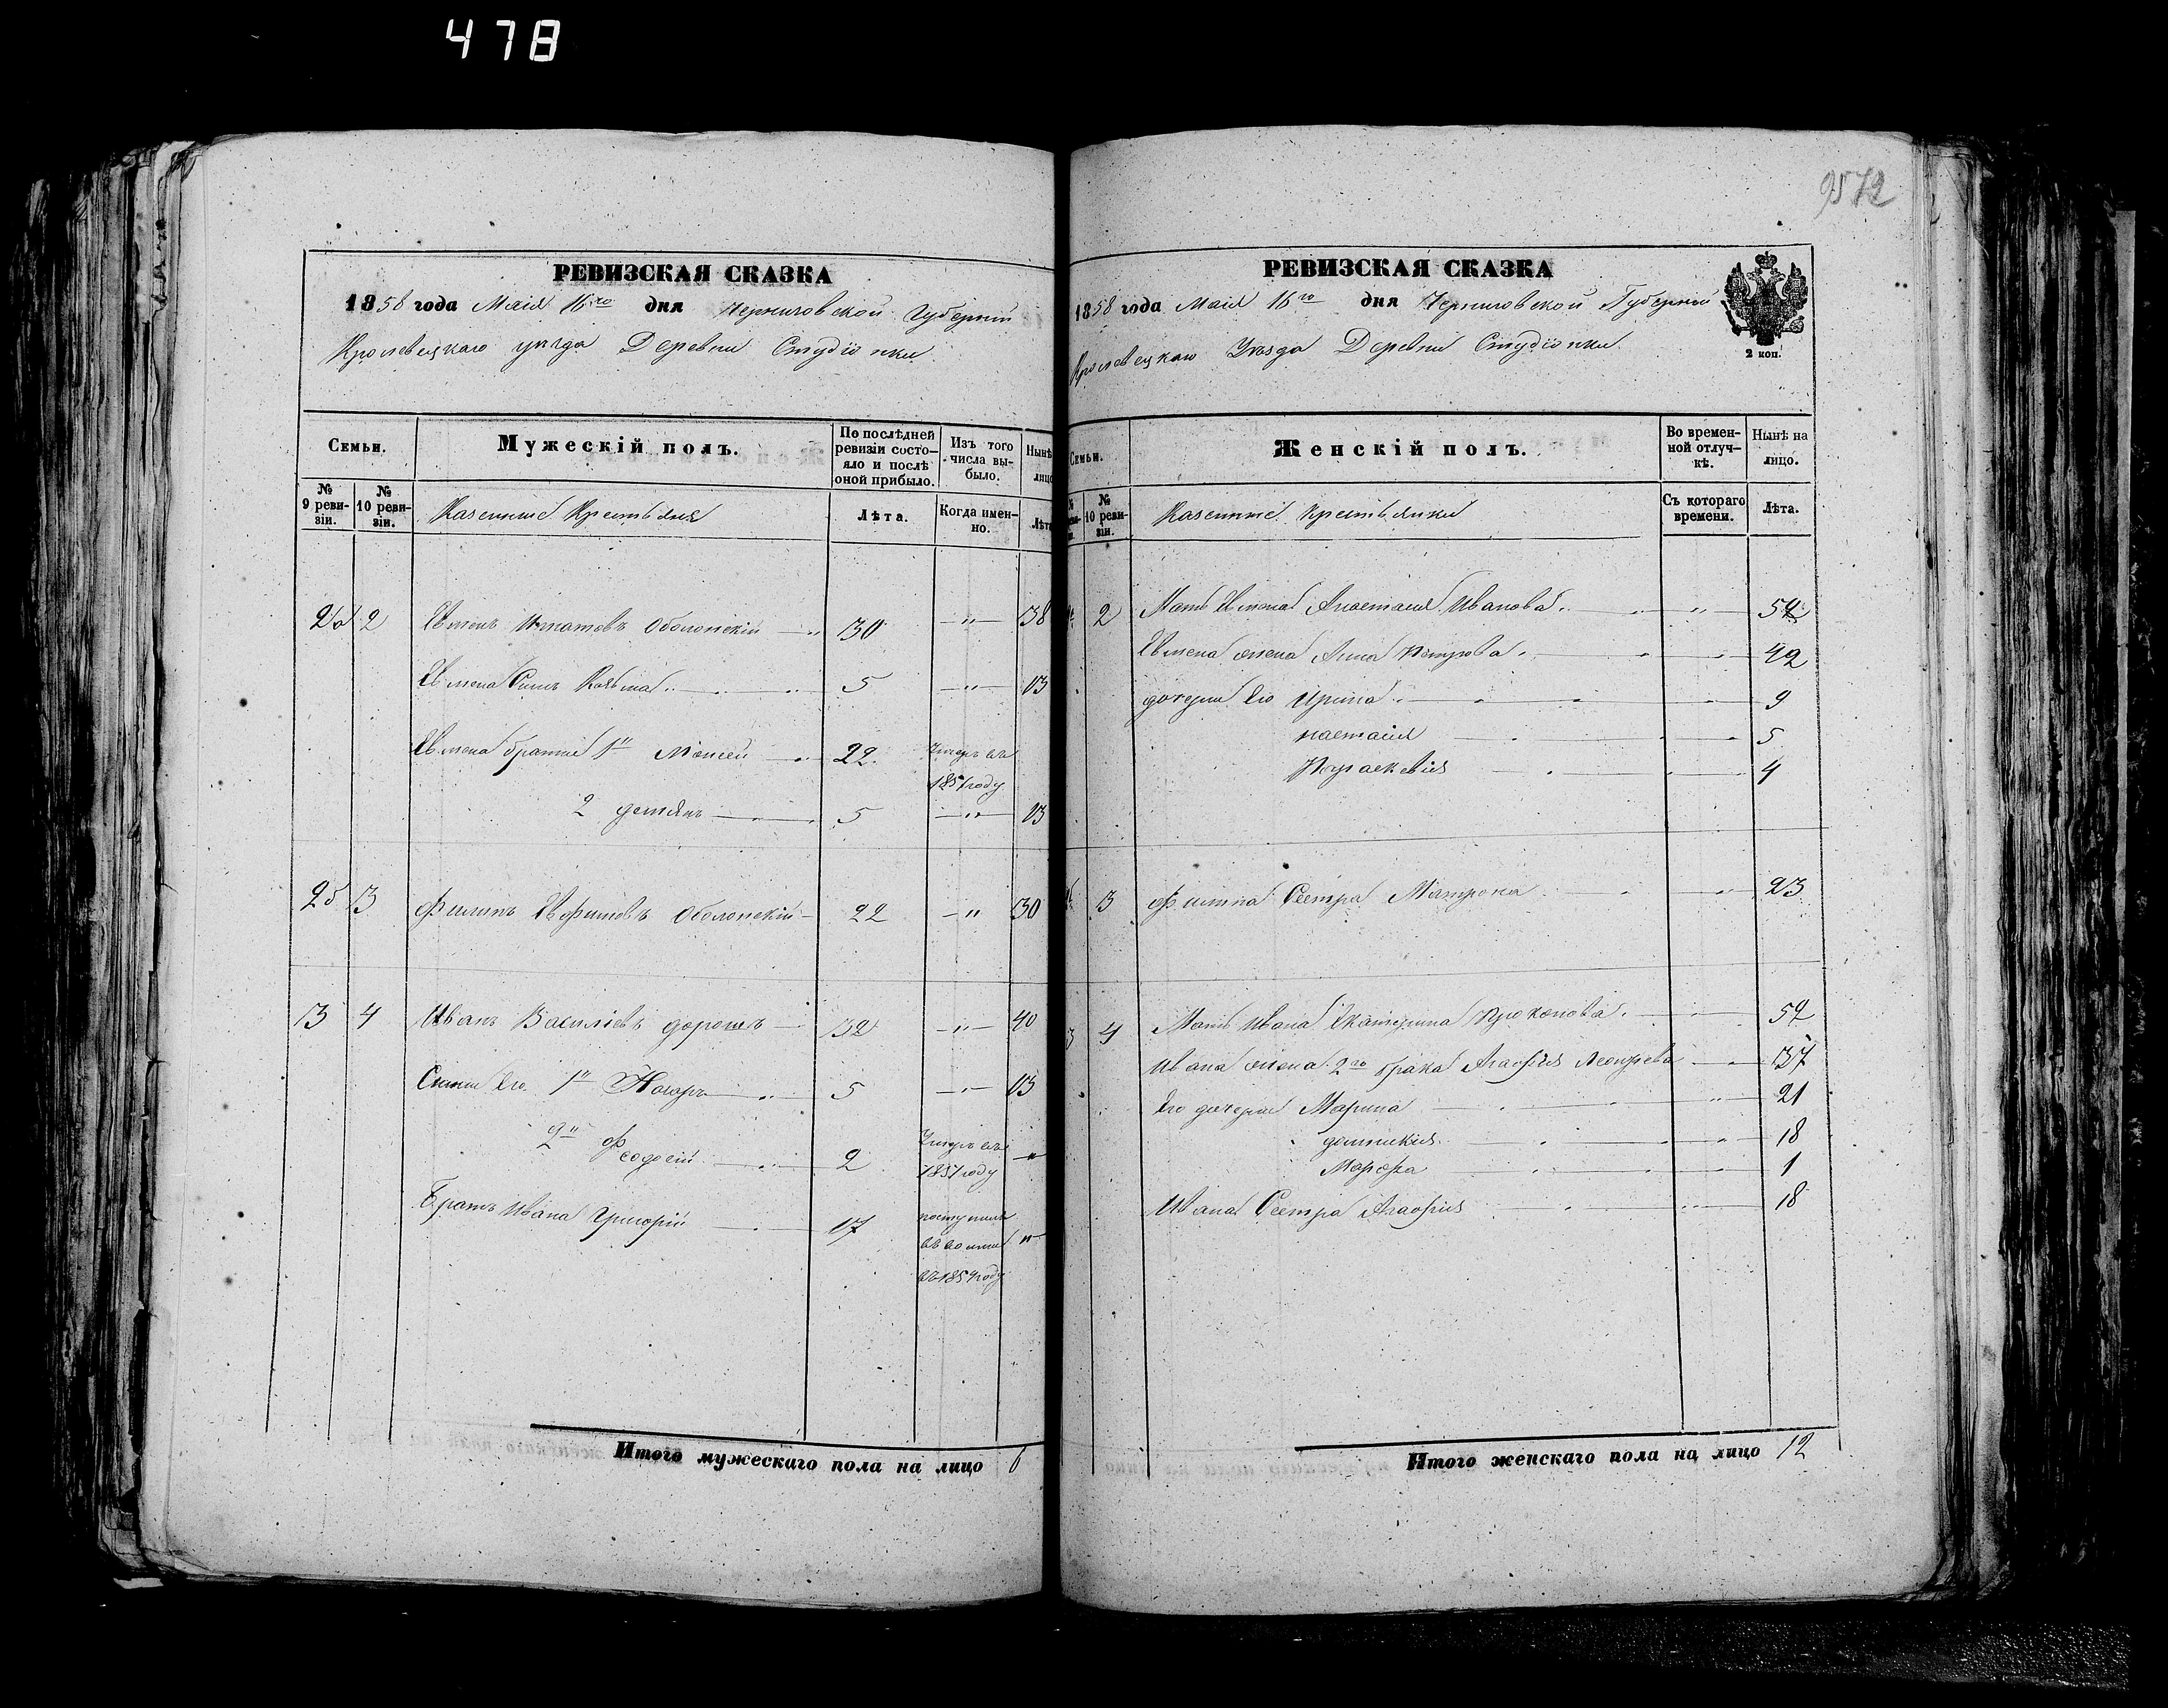 478
9572
РЕВИЗСКАЯ СКАЗКА
1858 года Маія 16го дня Черниговской Губерніи
Кролевецкаго уѣзда Деревни Студіонки
Семьи.
Мужескій полъ.
По послѣдней ревизіи состояло и послѣ оной прибыло.
Изъ того числа выбыло.
Нынѣ
лицо
№ 9 ревизіи.
№ 10 ревизіи.
Казенные Крестьяне
Лѣта.
Когда именно.
Лѣт
2а 2 Евменъ Игнатовъ Оболонскій 30 — " — 38
Евмена Сынъ Козьма 5 — " — 13
Евмена братья 1й Моисей 22 Умеръ въ
1857 году
2 Демьянъ 5 — " — 13
2б 3 Филипъ Евфимовъ Оболонскій 22 — " 30
3 4 Иванъ Василіевъ Дорошъ 32 — " — 40
Сыны Его 1й Назаръ 5 — " — 13
2й Феодосій 2 Умеръ въ "
1851 году
Братъ Ивана Григорій 17 поступилъ
въ 1854 году "
Итого мужескаго пола на лицо 6
РЕВИЗСКАЯ СКАЗКА
1858 года Маія 16го дня Черниговской Губерніи
Кролевецкаго Уѣзда Деревни Студіонки
2 коп.
Семьи.
Женскій полъ.
Во временной отлучкѣ.
Нынѣ на лицо.
№ 10 ревизіи.
Казенные Крестьянки
Съ котораго времени.
Лѣта.
2 Мать Евмена Анастасія Иванова — " — 52
Евмена жена Анна Петрова 42
дочери Его Ирина 9
Настасія 5
Параскевія 4
3 Филипа Сестра Матрона 23
3 4 Мать Ивана Екатерина Прокопова 52
Ивана жена 2го брака Агафія 37
Его дочери Марина 21
Домникія 18
Марфа 1
Ивана Сестра Агафія 18
Итого женскаго пола на лицо 12